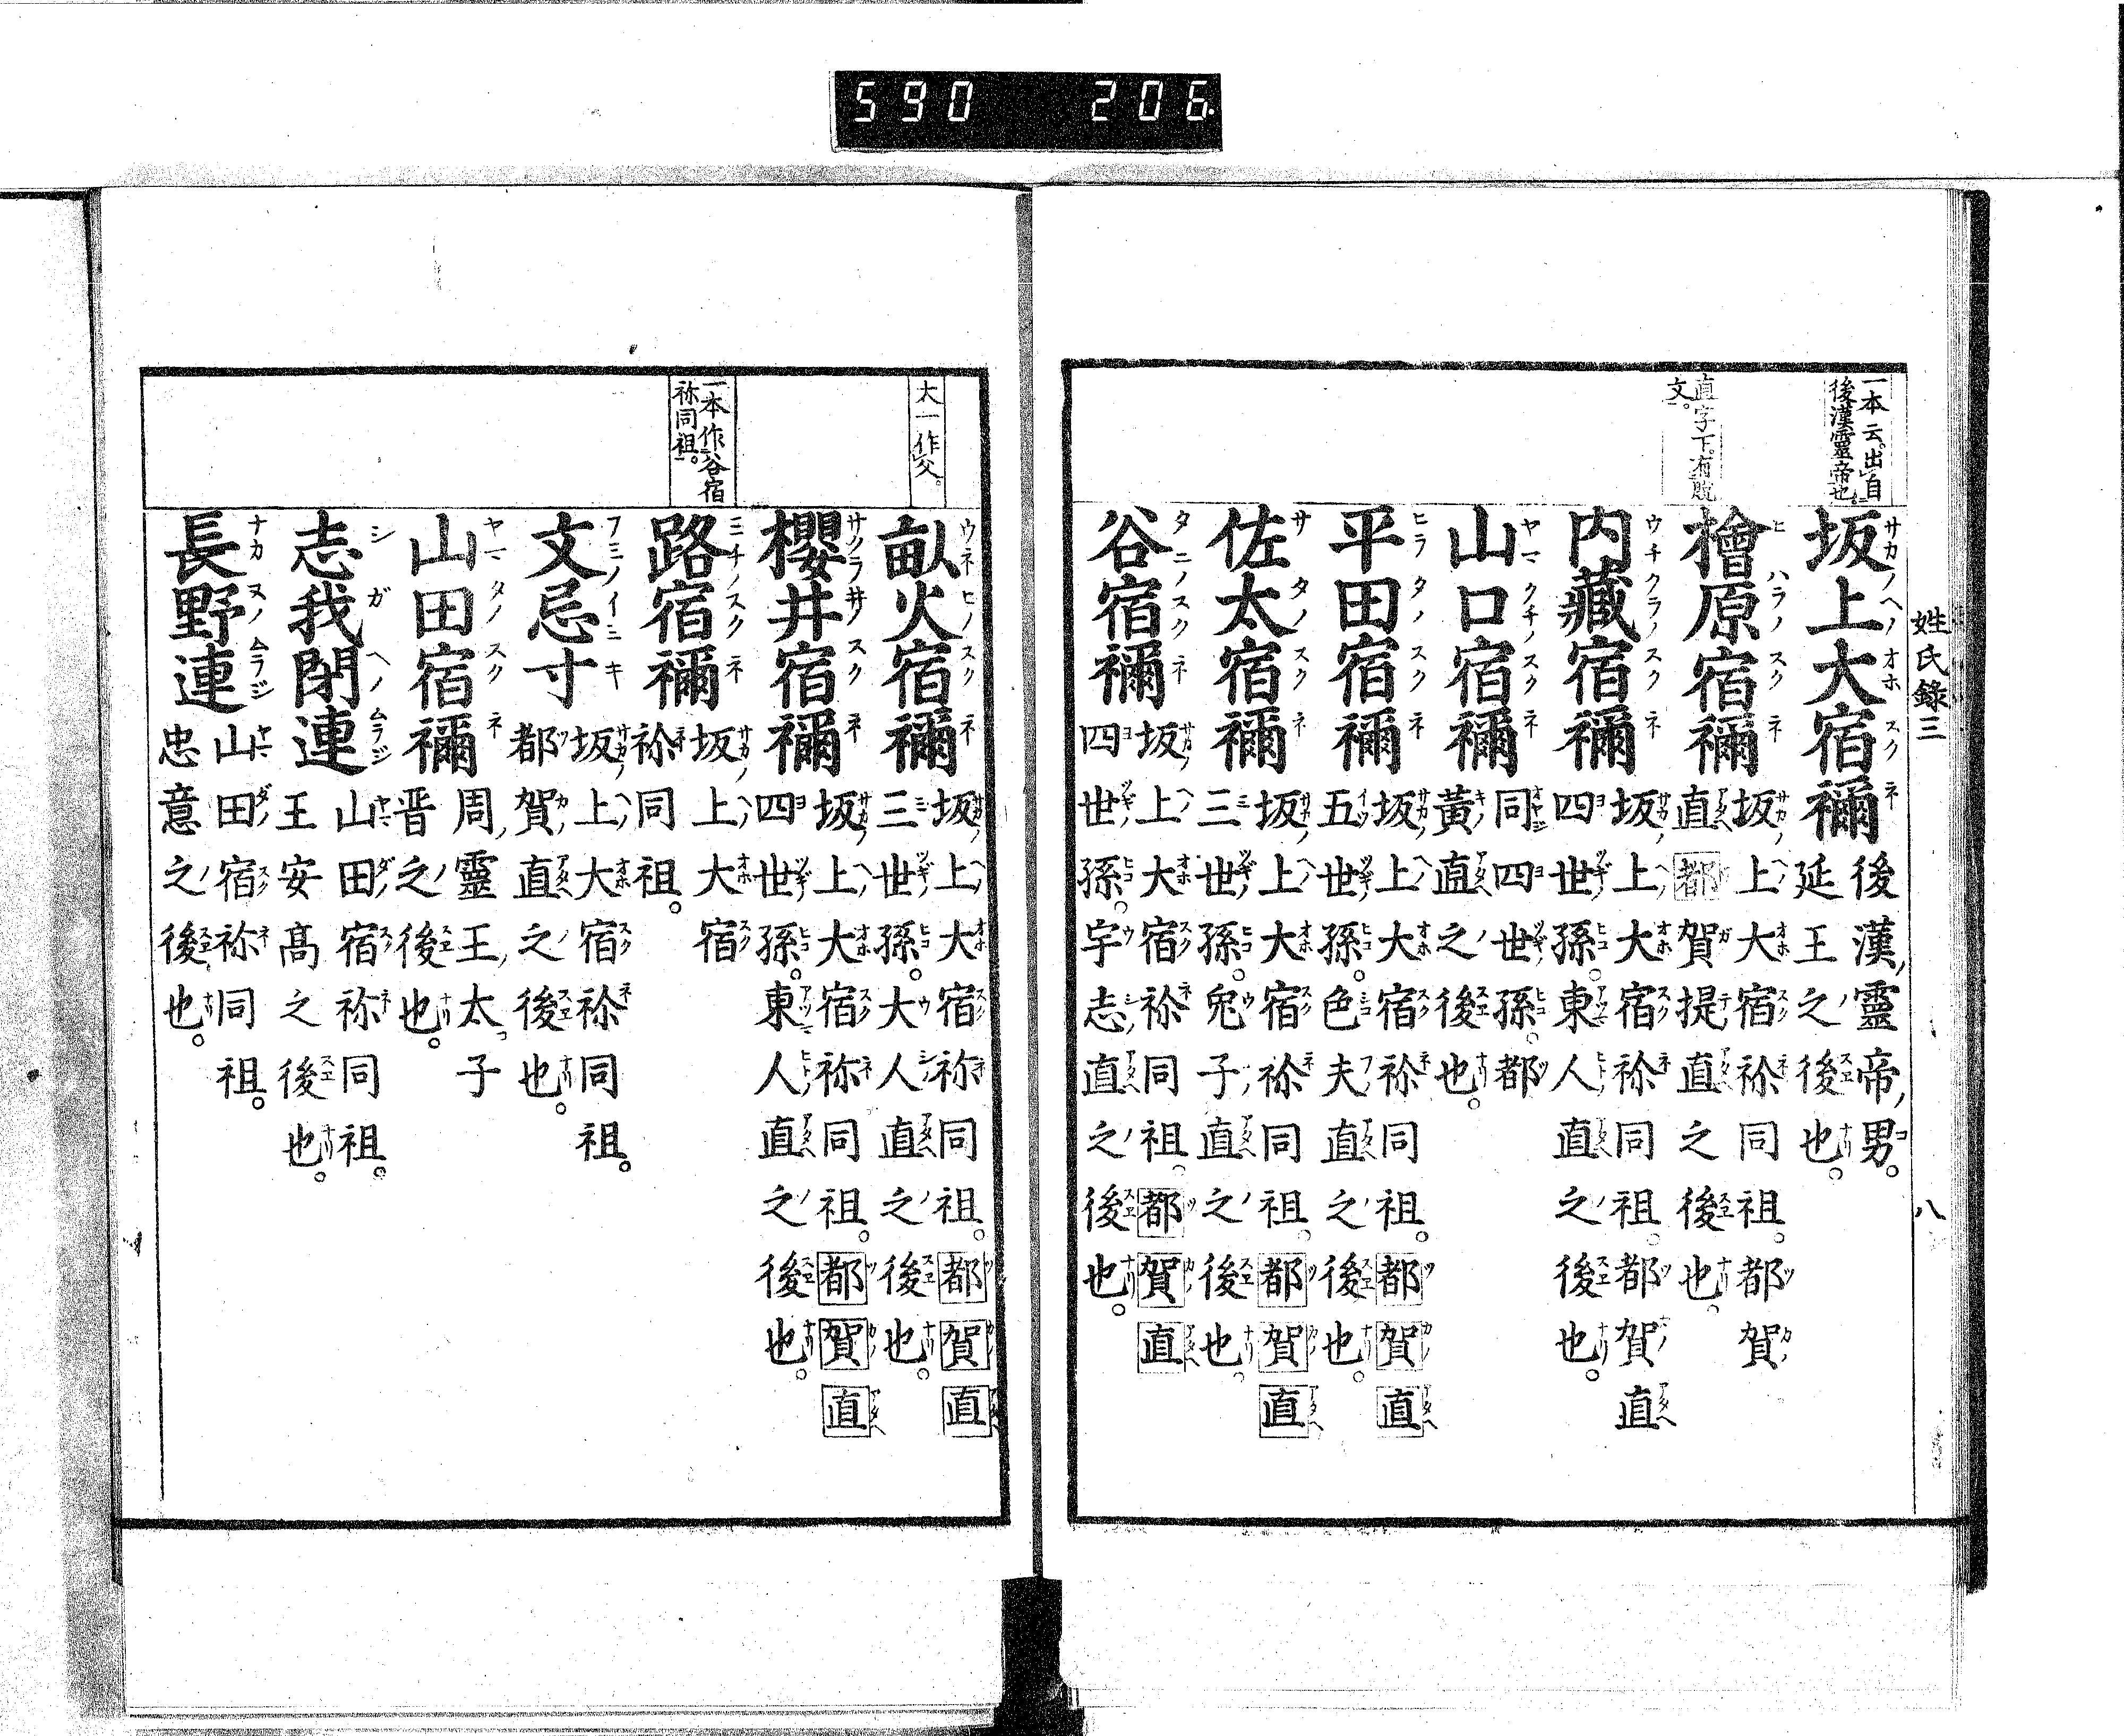 590 206
姓氏錄三 八
一本云。出自
後漢靈帝也。
直字下。有脫
文。
坂上大宿禰 後漢靈帝男。
延王之後也。
檜原宿禰 坂上大宿祢同祖。都賀
直都賀提直之後也。
内藏宿禰 坂上大宿祢同祖。都賀直
四世孫。東人直之後也。
山口宿禰 同四世孫。都
黃直之後也。
平田宿禰 坂上大宿祢同祖。都賀直
五世孫。色夫直之後也。
佐太宿禰 坂上大宿祢同祖。都賀直
三世孫。兔子直之後也。
谷宿禰 坂上大宿祢同祖。都賀直
四世孫。宇志直之後也。
大一作父。
一本作谷宿
祢同祖。
畝火宿禰 坂上大宿祢同祖。都賀直
三世孫。大人直之後也。
櫻井宿禰 坂上大宿祢同祖。都賀直
四世孫。東人直之後也。
路宿禰 坂上大宿
祢同祖。
文忌寸 坂上大宿祢同祖。
都賀直之後也。
山田宿禰 周靈王太子
晋之後也。
志我閉連 山田宿祢同祖。
王安髙之後也。
長野連 山田宿祢同祖。
忠意之後也。